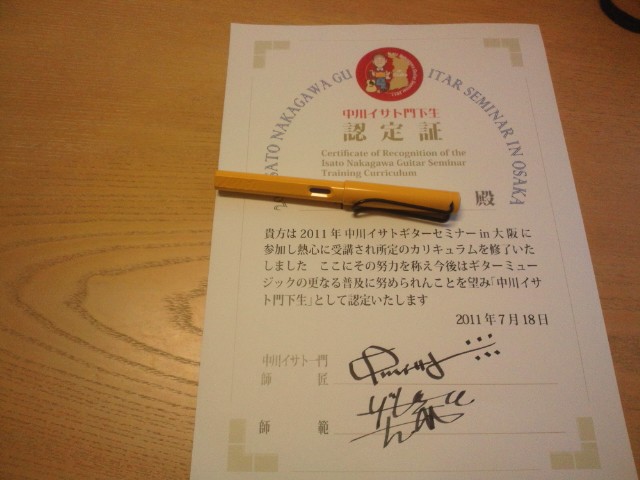 ISATO NAKAGAWA GUITAR SEMINAR IN OSAKA
中川イサト門下生
認定証
Certificate of Recognition of the
Isato Nakagawa Guitar Seminar
Training Curriculum
殿
貴方は2011年 中川イサトギターセミナーin大阪に
参加し熱心に受講され所定のカリキュラムを修了いた
しました　ここにその努力を称え今後はギターミュー
ジックの更なる普及に努められんことを望み「中川イサ
ト門下生」として認定いたします
2011年7月18日
中川イサト一門
師匠
中川イサト
師範